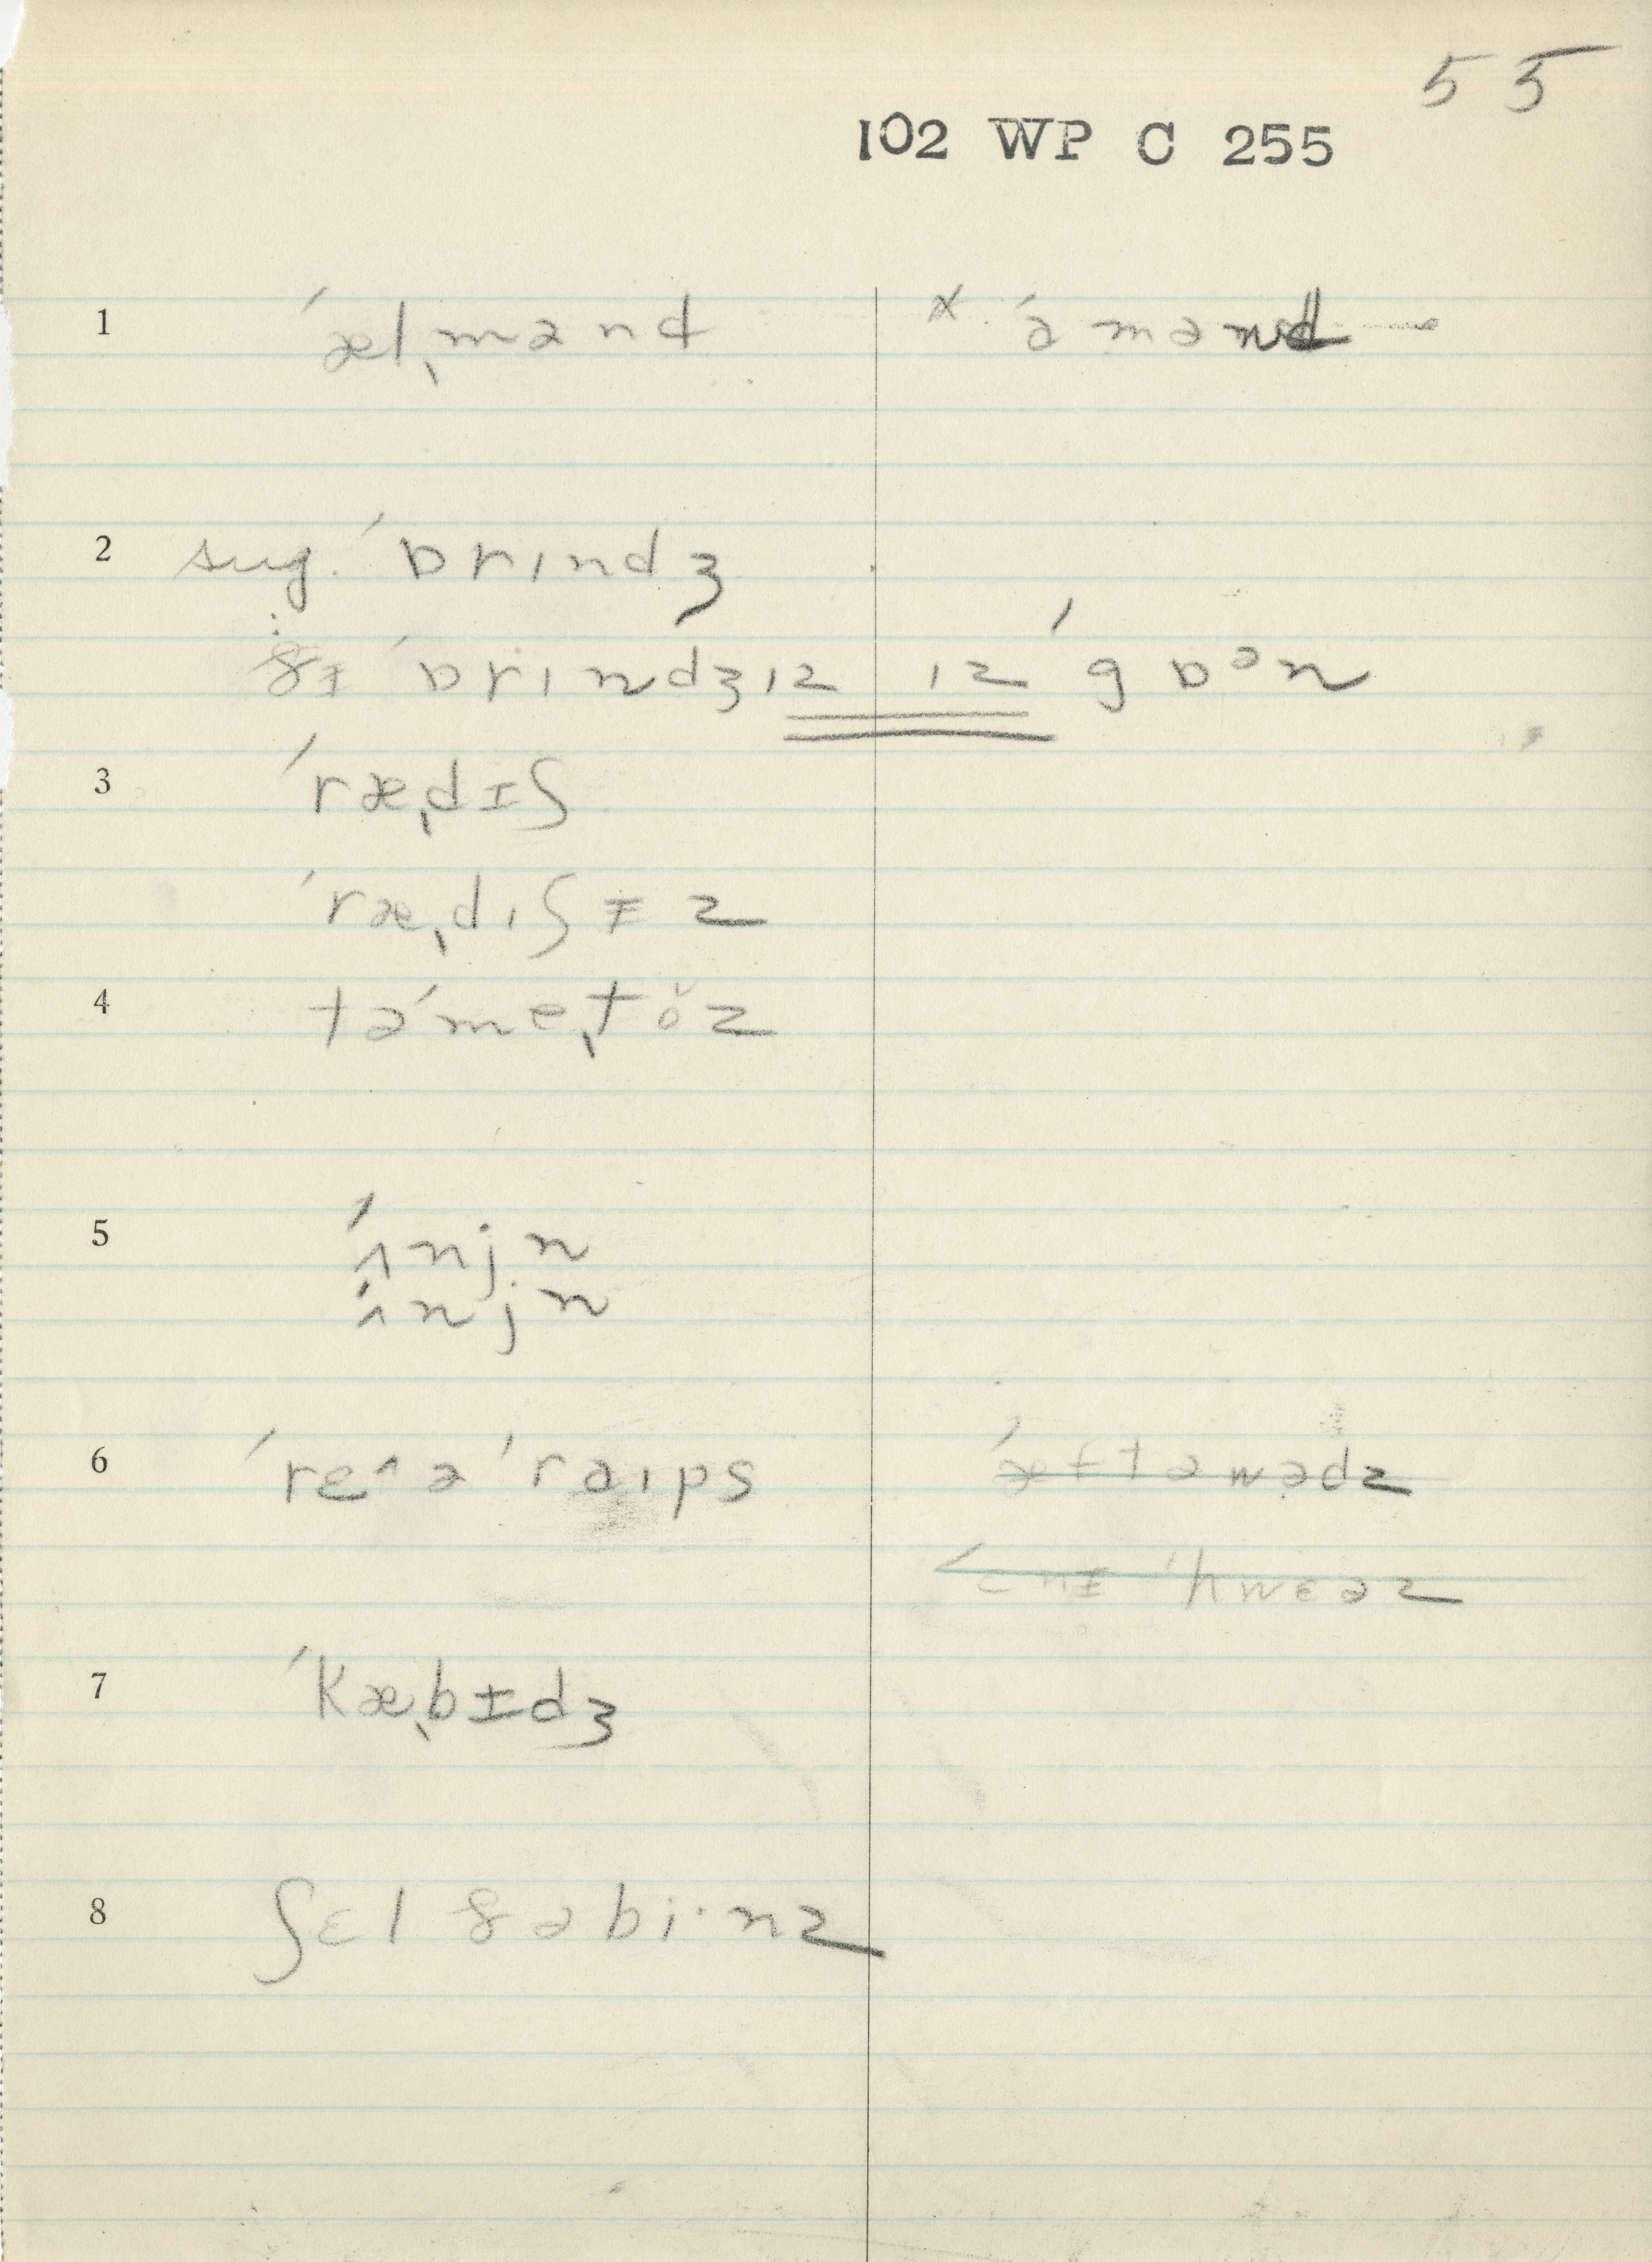 55
102 WP C 255
1 ˈælˌmənd × ˈɑmənd
2 sug. ˈbrɪndʒ
ðɨ ˈbrɪndʒɪz ɪz ˈg ɒᵊn
3 ˈræˌdɨʃ
ˈræˌdɪʃɨz
4 təˈmeˌtŏz
5 ˈʌnjn
ˈʌnjn
6 ˈrɛᶺə ˈraɪps ˈæftəwədz
ɛnɨ ˈhwɛəz
7 ˈkæˌbɨdʒ
8 ʃɛl ðə biˑnz